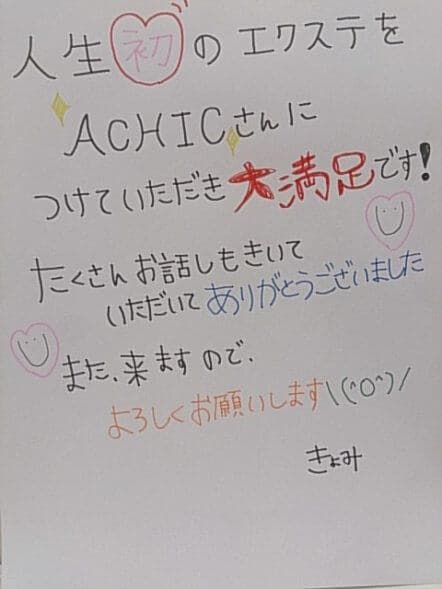 人生初のエクステを
ACHICさんに
つけていただき大満足です!
たくさんお話しもきいて
いただいてありがとうございました
また、来ますので、
よろしくお願いします\(^O^)/
きよみ